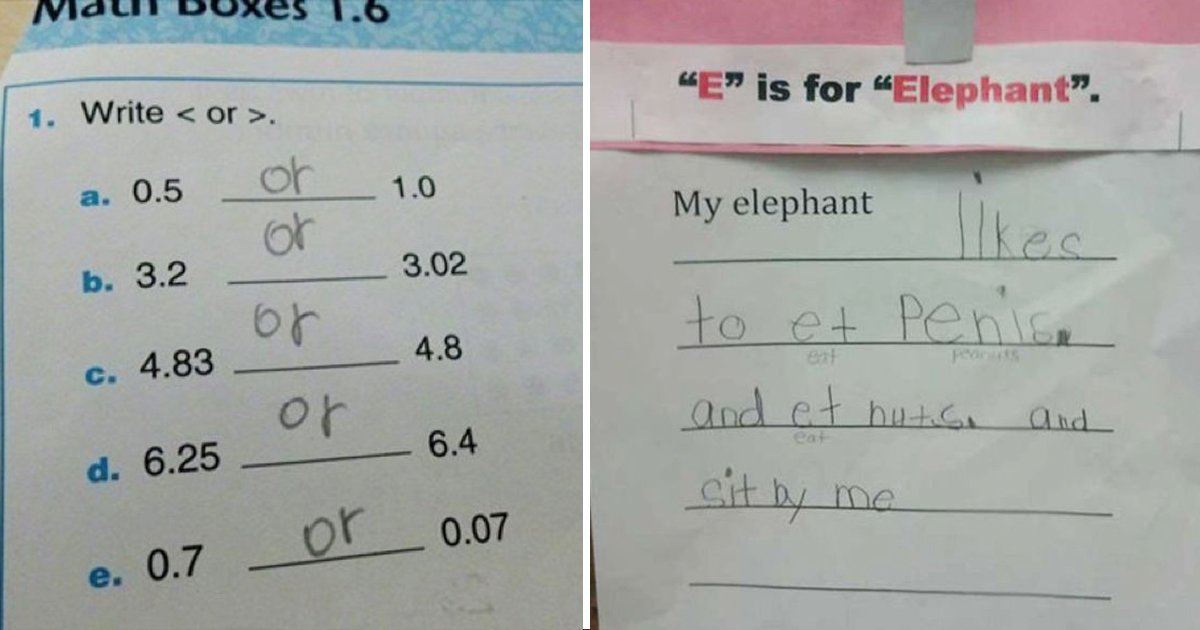 Math Boxes 1.6
1. Write < or >.
a. 0.5 or 1.0
b. 3.2 or 3.02
c. 4.83 or 4.8
d. 6.25 or 6.4
e. 0.7 or 0.07
“E” is for “Elephant”.
My elephant likes
to et Penis.
eat peanuts
and et nuts. and
eat
sit by me